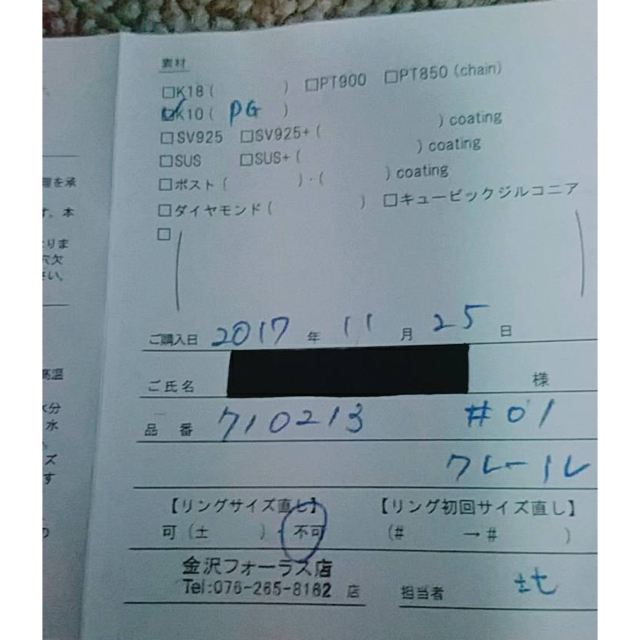 素材
□K18(　　　) □PT900 □PT850(chain)
☑K10( PG )
□SV925 □SV925+(　　　) coating
□SUS □SUS+(　　　) coating
□ポスト(　　　)・(　　　) coating
□ダイヤモンド(　　　) □キュービックジルコニア
□(　　　)
ご購入日 2017 年 11 月 25 日
ご氏名 様
品番 710213 #01
クレール
【リングサイズ直し】 【リング初回サイズ直し】
可(±　　)・不可 (#　　→#　　)
金沢フォーラス店
Tel:076-265-8162 店 担当者